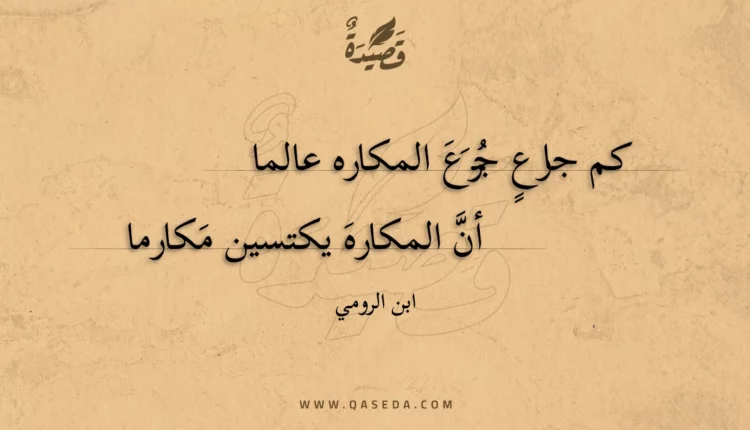 قَصِيْدَةٌ
كم جارعٍ جُرَعَ المكاره عالما
أنَّ المكارهَ يكتسين مَكارما
ابن الرومي
WWW.QASEDA.COM